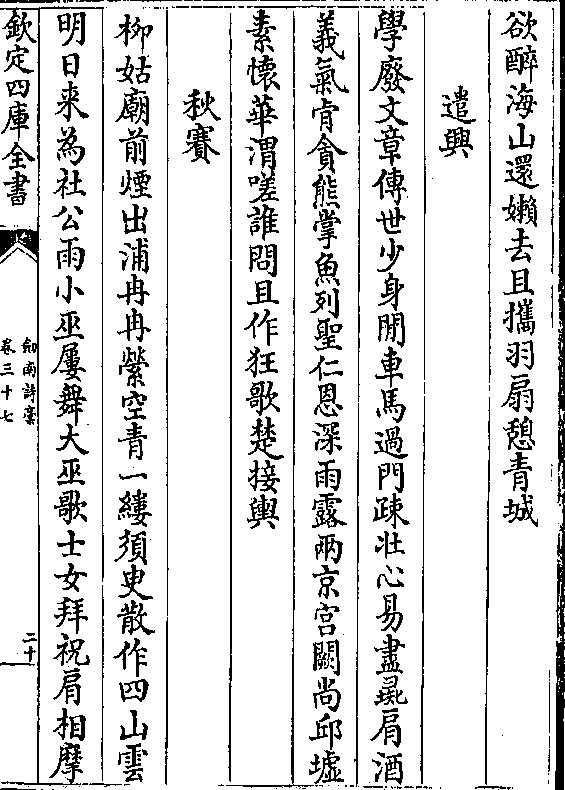 欲醉海山還嬾去且攜羽扇憩青城
遣興
學廢文章傳世少身閒車馬過門疎壯心易盡彘肩酒
義氣肯貪熊掌魚列聖仁恩深雨露兩京宮闕尚邱墟
素懷華渭嗟誰問且作狂歌楚接輿
秋賽
柳姑廟前煙出浦冉冉縈空青一縷須臾散作四山雲
明日来為社公雨小巫屢舞大巫歌士女拜祝肩相摩
欽定四庫全書
劍南詩稾
卷三十七
二十